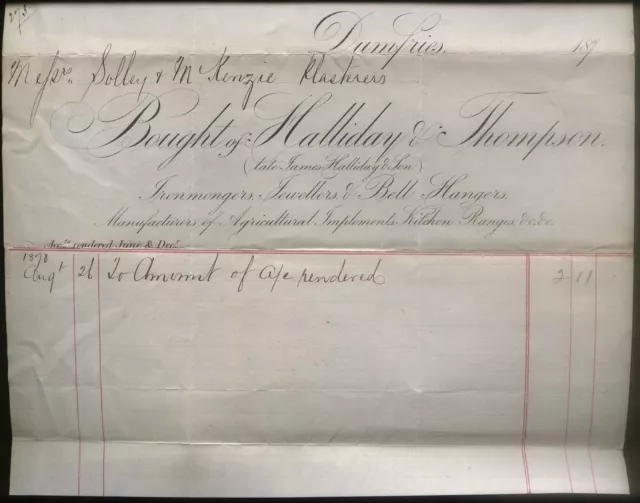 Dumfries, 187
Messrs. Solley & McKenzie Plasterers
Bought of Halliday & Thompson.
(late James Halliday & Son)
Ironmongers, Jewellers & Bell Hangers,
Manufacturers of Agricultural Implements, Kitchen Ranges, &c. &c.
Acc.ts rendered June & Dec.r
1878
Augt 26 To Amount of a/c rendered 2 11